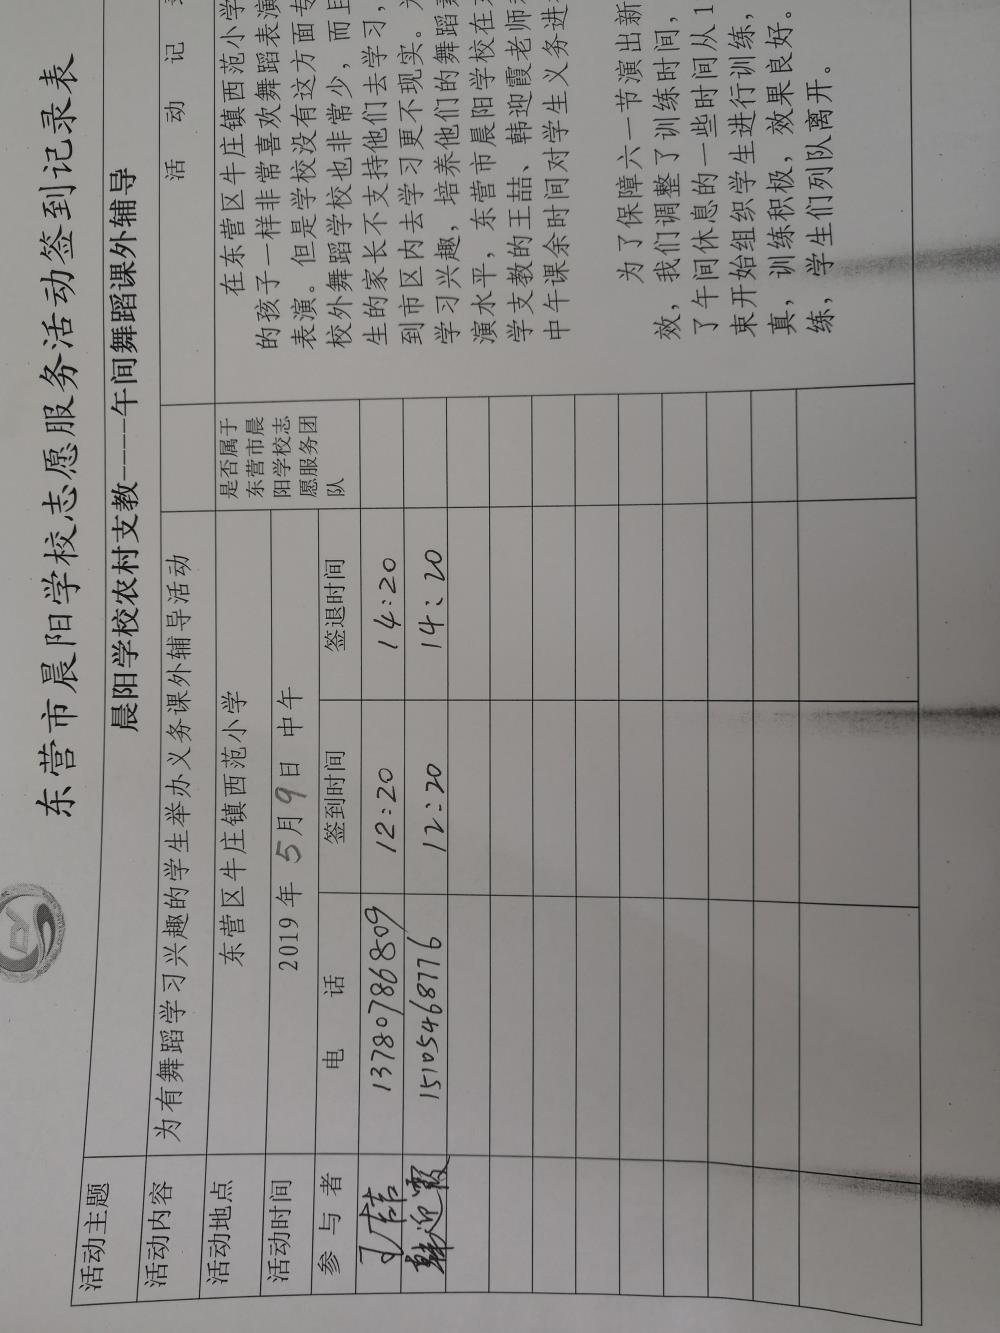 东营市晨阳学校志愿服务活动签到记录表
活动主题 晨阳学校农村支教----午间舞蹈课外辅导
活动内容 为有舞蹈学习兴趣的学生举办义务课外辅导活动
活动地点 东营区牛庄镇西范小学
活动时间 2019 年 5 月 9 日 中午
参 与 者 电 话 签到时间 签退时间
是否属于
东营市晨
阳学校志
愿服务团
队
王喆 13780786809 12:20 14:20
韩迎霞 15105468776 12:20 14:20
活 动 记
在东营区牛庄镇西范小学
的孩子一样非常喜欢舞蹈表演
表演。但是学校没有这方面专
校外舞蹈学校也非常少，而且
生的家长不支持他们去学习，
到市区内去学习更不现实。
学习兴趣，培养他们的舞蹈
演水平，东营市晨阳学校在
学支教的王喆、韩迎霞老师
中午课余时间对学生义务进
为了保障六一节演出新
效，我们调整了训练时间，
了午间休息的一些时间从 1
束开始组织学生进行训练，
真，训练积极，效果良好。
练，学生们列队离开。